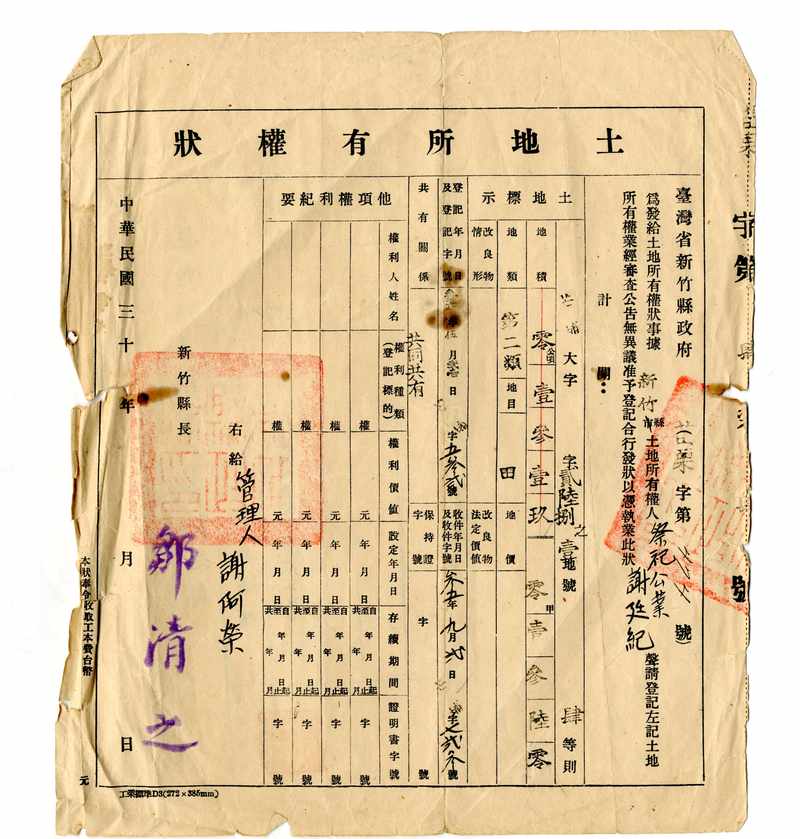 土地所有權狀
臺灣省新竹縣政府 苗栗字第 號
為發給土地所有權狀事據 新竹 縣市 土地所有權人 祭祀公業 謝廷紀 聲請登記左記土地
所有權業經審查公告無異議准予登記合行發狀以憑執業此狀
計開：
土地標示
大字 字 貳陸捌之壹 地號 肆等則
地積 零公頃壹參壹玖 零甲壹參陸零
地類 第二類 地目 田 地價
改良物情形 改良物法定價值
登記年月日及登記字號 年 月 日 字五參貳號
收件年月日及收件字號 參五年九月貳日 字 號
共有關係 共同共有 保持證字號 字 號
他項權利紀要
權利人姓名 權利種類(登記標的) 權利價值 設定年月日 存續期間 證明書字號
權 元 年月日 自年月日起 至年月日止 共年月 字 號
權 元 年月日 自年月日起 至年月日止 共年月 字 號
權 元 年月日 自年月日起 至年月日止 共年月 字 號
權 元 年月日 自年月日起 至年月日止 共年月 字 號
右給 管理人 謝阿榮
新竹縣長 鄒清之
中華民國三十 年 月 日
本狀奉令收取工本費台幣 元
工業標準D3(272×385mm)
字第
號